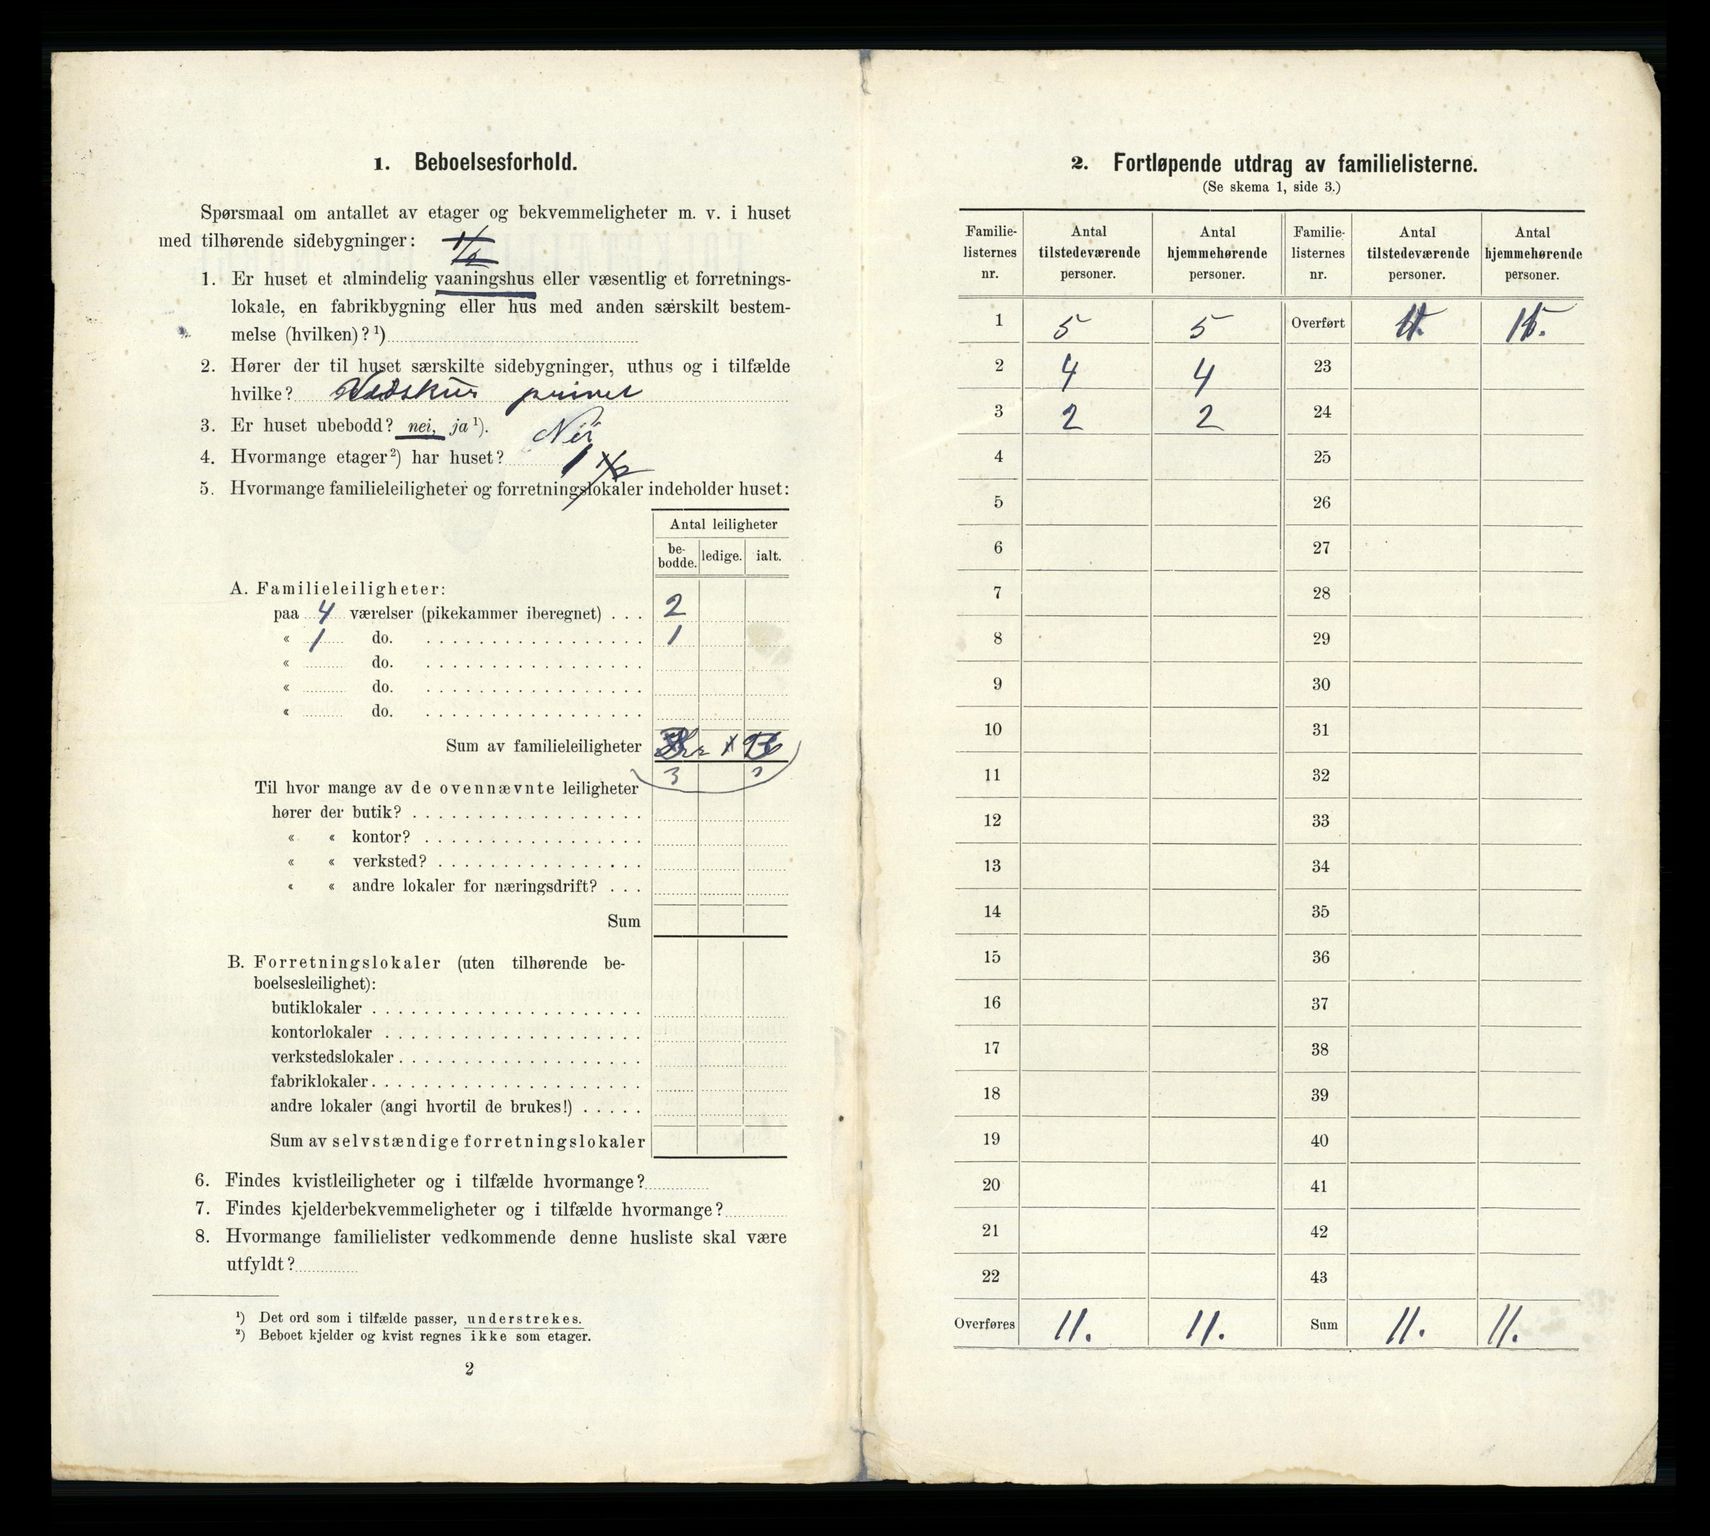 1. Beboelsesforhold.
Spørsmaal om antallet av etager og bekvemmeligheter m. v. i huset
med tilhørende sidebygninger:
1. Er huset et almindelig vaaningshus eller væsentlig et forretnings-
lokale, en fabrikbygning eller hus med anden særskilt bestem-
melse (hvilken)? ¹)
2. Hører der til huset særskilte sidebygninger, uthus og i tilfælde
hvilke? Vedskur privet
3. Er huset ubebodd? nei, ja ¹). Nei
4. Hvormange etager ²) har huset? 1 1/2
5. Hvormange familieleiligheter og forretningslokaler indeholder huset:
Antal leiligheter
be-
bodde. ledige. ialt.
A. Familieleiligheter:
paa 4 værelser (pikekammer iberegnet) . . . 2
« 1 do. 1
« do.
« do.
« do.
Sum av familieleiligheter
3 3
Til hvor mange av de ovennævnte leiligheter
hører der butik?
« « kontor?
« « verksted?
« « andre lokaler for næringsdrift? . . .
Sum
B. Forretningslokaler (uten tilhørende be-
boelsesleilighet):
butiklokaler
kontorlokaler
verkstedslokaler
fabriklokaler
andre lokaler (angi hvortil de brukes!) . . . . .
Sum av selvstændige forretningslokaler
6. Findes kvistleiligheter og i tilfælde hvormange?
7. Findes kjelderbekvemmeligheter og i tilfælde hvormange?
8. Hvormange familielister vedkommende denne husliste skal være
utfyldt?
¹) Det ord som i tilfælde passer, understrekes.
²) Beboet kjelder og kvist regnes ikke som etager.
2
2. Fortløpende utdrag av familielisterne.
(Se skema 1, side 3.)
Familie- Antal Antal Familie- Antal Antal
listernes tilstedeværende hjemmehørende listernes tilstedeværende hjemmehørende
nr. personer. personer. nr. personer. personer.
1 5 5 Overført
2 4 4 23
3 2 2 24
4 25
5 26
6 27
7 28
8 29
9 30
10 31
11 32
12 33
13 34
14 35
15 36
16 37
17 38
18 39
19 40
20 41
21 42
22 43
Overføres 11. 11. Sum 11. 11.